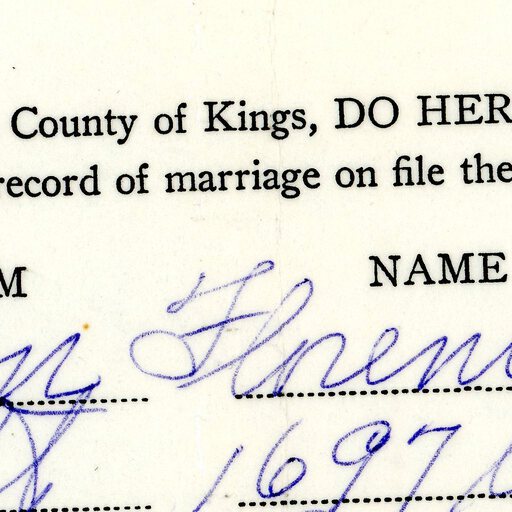 County of Kings, DO HER
record of marriage on file the
M NAME
Floren
1697